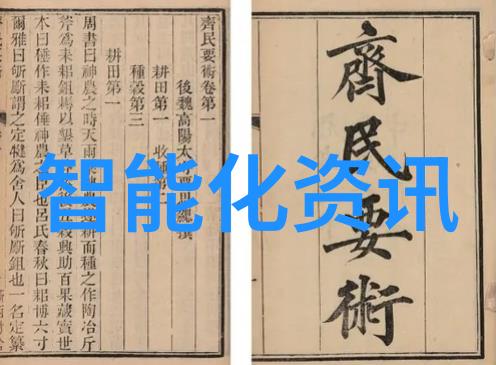 智能化资讯
齊民要術
齊民要術卷第一
後魏高陽太守賈思勰撰
耕田第一 收種第二
種穀第三
耕田第一
周書曰神農之時天雨粟神農遂耕而種之作陶冶斤
斧為耒耜鉏耨以墾草莽五穀興助百果藏實世
本曰倕作耒耜倕神農之臣也呂氏春秋曰耜博六寸
爾雅曰斪斸謂之定犍為舍人曰斪斸鉏也一名定纂